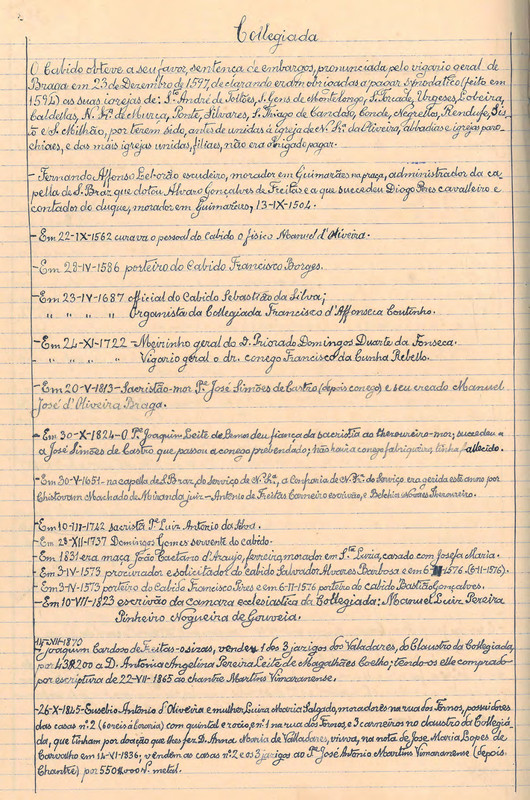 Collegiada
O Cabido obteve a seu favor, sentença de embargos, pronunciada pelo vigario geral de
Braga em 23 de Dezembro de 1597, declarando eram obrigadas a pagar synodatico (feito em
1594) as suas igrejas de: S.to André de Tolões, S. Gens de Montelongo, S. Torcade, Urgeses, Lobeira,
Caldellas, N. Sr.ª de Murça, Ponte, Silvares, S. Thiago de Candoso, Conde, Negrellos, Rendufe,
e S. Milhão, por terem sido, antes de unidas á igreja de N. Sr.ª da Oliveira, abbadias e igrejas paro-
chiaes, e dos mais igrejas unidas, filiaes, não era obrigado pagar.
- Fernando Affonso Leborão escudeiro, morador em Guimarães na praça, administrador da ca-
pella de S. Braz que dotou Alvaro Gonçalves de Freitas e a que succedeu Diogo Pires cavalleiro e
contador do duque, morador em Guimarães, 13-IX-1504.
- Em 22-IX-1562 curava o pessoal do Cabido o fisico Manuel d'Oliveira.
- Em 29-IV-1586 porteiro do Cabido Francisco Borges.
- Em 23-IV-1687 official do Cabido Sebastião da Silva;
" " " " Organista da Collegiada Francisco d'Affonseca Coutinho.
- Em 24-XI-1722 - Meirinho geral do D. Priorado Domingos Duarte da Fonseca.
- " " " " Vigario geral o dr. conego Francisco da Cunha Rebello.
- Em 20-V-1813 - Sacristão-mor P.e José Simões de Castro (depois conego) e seu creado Manuel
José d'Oliveira Braga.
- Em 30-X-1824 - O P.e Joaquim Leite de Lemos deu fiança da sacristia ao thesoureiro-mor; succedeu a
a José Simões de Castro que passou a conego prebendado; não havia conego fabriqueiro, tinha fallecido.
- Em 30-V-1651 - na capella de S. Braz, do Serviço de N. Sr.ª, a Confraria de N. Sr.ª do Serviço era gerida este anno por
Christovam Machado de Miranda juiz - Antonio de Freitas Carneiro escrivão, e Belchior Novaes thesoureiro.
- Em 10-III-1742 sacrista P.e Luiz Antonio da Silva.
- Em 28-XII-1737 Domingos Gomes servente do cabido.
- Em 1831 era maça João Caetano d'Araujo, ferreiro, morador em S.ta Luzia, casado com Josefa Maria.
- Em 3-IV-1573 procurador e solicitador do cabido Salvador Alvares Barbosa e em 6- 1576 (6-II-1576).
- Em 3-IV-1573 porteiro do Cabido Francisco Pires e em 6-II-1576 porteiro do cabido Bastião Gonçalves.
- Em 10-VII-1823 escrivão da camara ecclesiastica da Collegiada: Manuel Luiz Pereira
Pinheiro Nogueira de Gouveia.
14-XII-1870
- Joaquim Cardoso de Freitas-osinas, vender 1 dos 3 jazigos dos Valadares, do Claustro da Collegiada,
por 43$200 a D. Antonia Angelina Pereira Leite de Magalhães Coelho; tendo-os elle comprado
por escriptura de 22-VII-1865 ao chantre Martins Vimaranense.
- 26-X-1845 - Eusebio Antonio d'Oliveira e mulher Luiza Maria Salgado, moradores na rua dos Fornos, possuidores
das casas n.º 2 (60 reis á Coraria) com quintal e rocio, e n.º 1 na rua dos Fornos, e 3 carneiros no claustro da Collegia-
da, que tinham por doação que lhes fez D. Anna Maria de Valladares, viuva, na nota de Jose Maria Lopes de
Carvalho em 14-VI-1836, vendem as casas n.º 2 e os 3 jazigos ao P.e José Antonio Martins Vimaranense (depois
Chantre) por 550$000 r. metal.